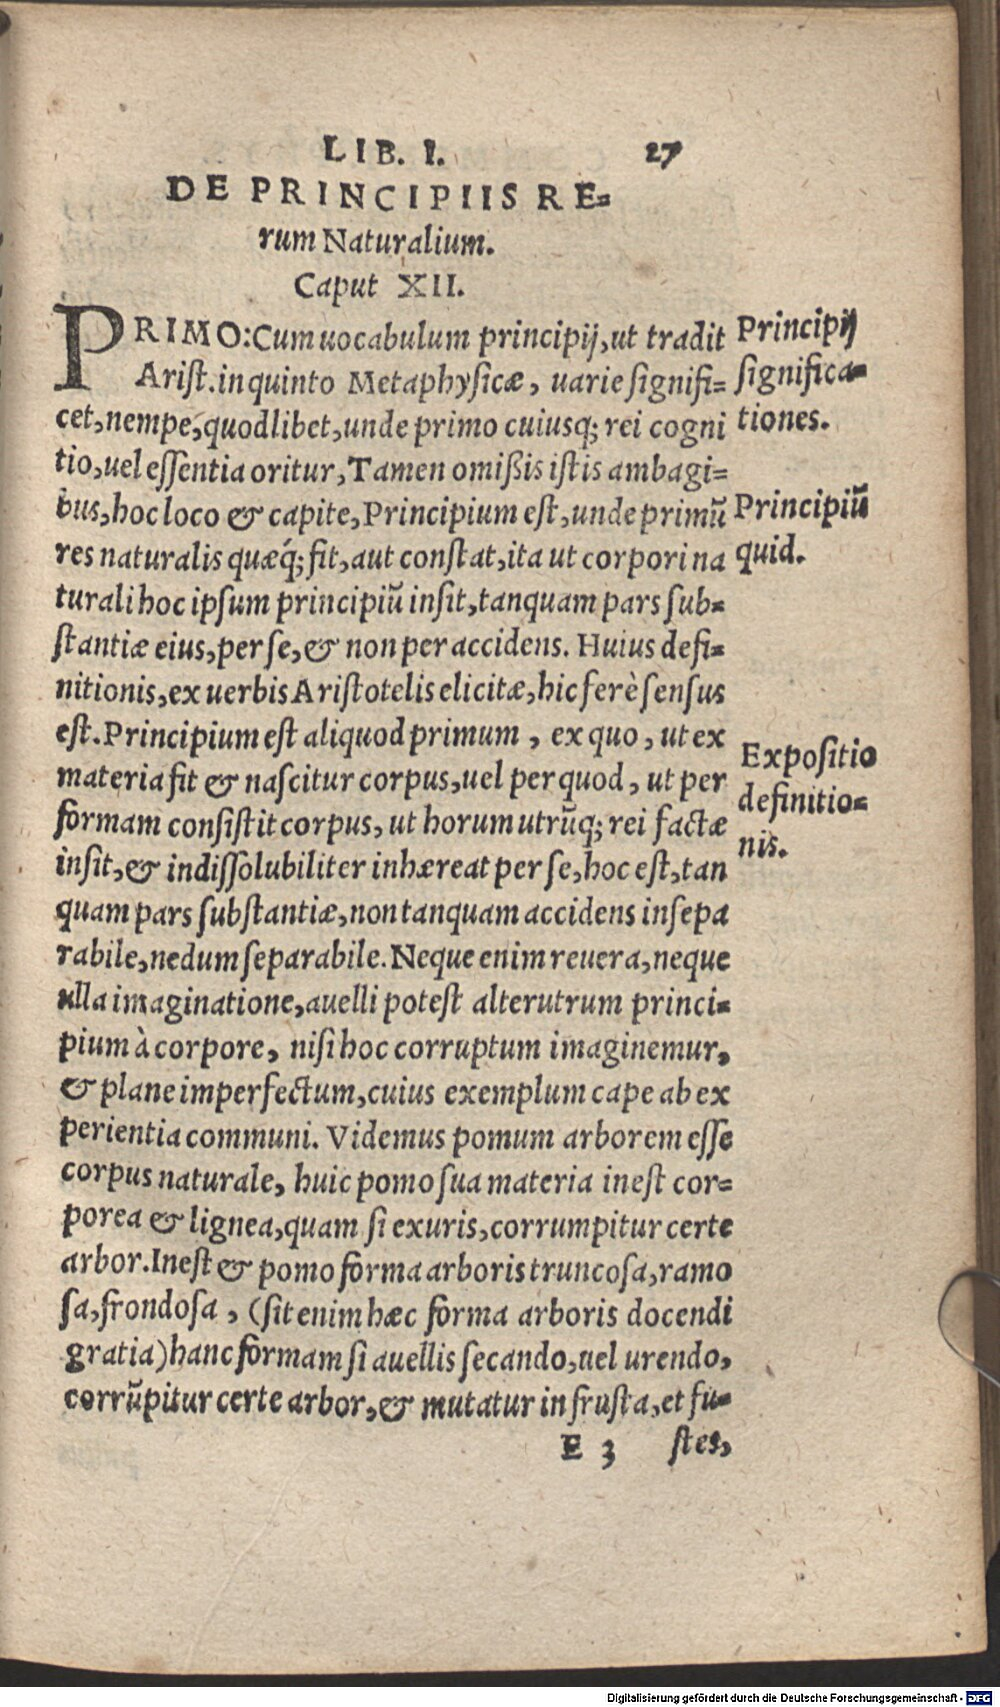 LIB. I. 27
DE PRINCIPIIS RE=
rum Naturalium.
Caput XII.
PRIMO: Cum uocabulum principij, ut tradit
Arist. in quinto Metaphysicæ, uarie signifi=
cet, nempe, quodlibet, unde primo cuiusq; rei cogni
tio, uel essentia oritur, Tamen omißis istis ambagi=
bus, hoc loco & capite, Principium est, unde primũ
res naturalis quæq́; fit, aut constat, ita ut corpori na
turali hoc ipsum principiũ insit, tanquam pars sub=
stantiæ eius, per se, & non per accidens. Huius defi=
nitionis, ex uerbis Aristotelis elicitæ, hic ferè sensus
est. Principium est aliquod primum, ex quo, ut ex
materia fit & nascitur corpus, uel per quod, ut per
formam consistit corpus, ut horum utrũq; rei factæ
insit, & indissolubiliter inhæreat per se, hoc est, tan
quam pars substantiæ, non tanquam accidens insepa
rabile, nedum separabile. Neque enim reuera, neque
ulla imaginatione, auelli potest alterutrum princi=
pium à corpore, nisi hoc corruptum imaginemur,
& plane imperfectum, cuius exemplum cape ab ex
perientia communi. Videmus pomum arborem esse
corpus naturale, huic pomo sua materia inest cor=
porea & lignea, quam si exuris, corrumpitur certe
arbor. Inest & pomo forma arboris truncosa, ramo
sa, frondosa, (sit enim hæc forma arboris docendi
gratia) hanc formam si auellis secando, uel urendo,
corrũpitur certe arbor, & mutatur in frusta, et fu=
E 3 stes,
Principij
significa=
tiones.
Principiũ
quid.
Expositio
definitio=
nis.
Digitalisierung gefördert durch die Deutsche Forschungsgemeinschaft - DFG